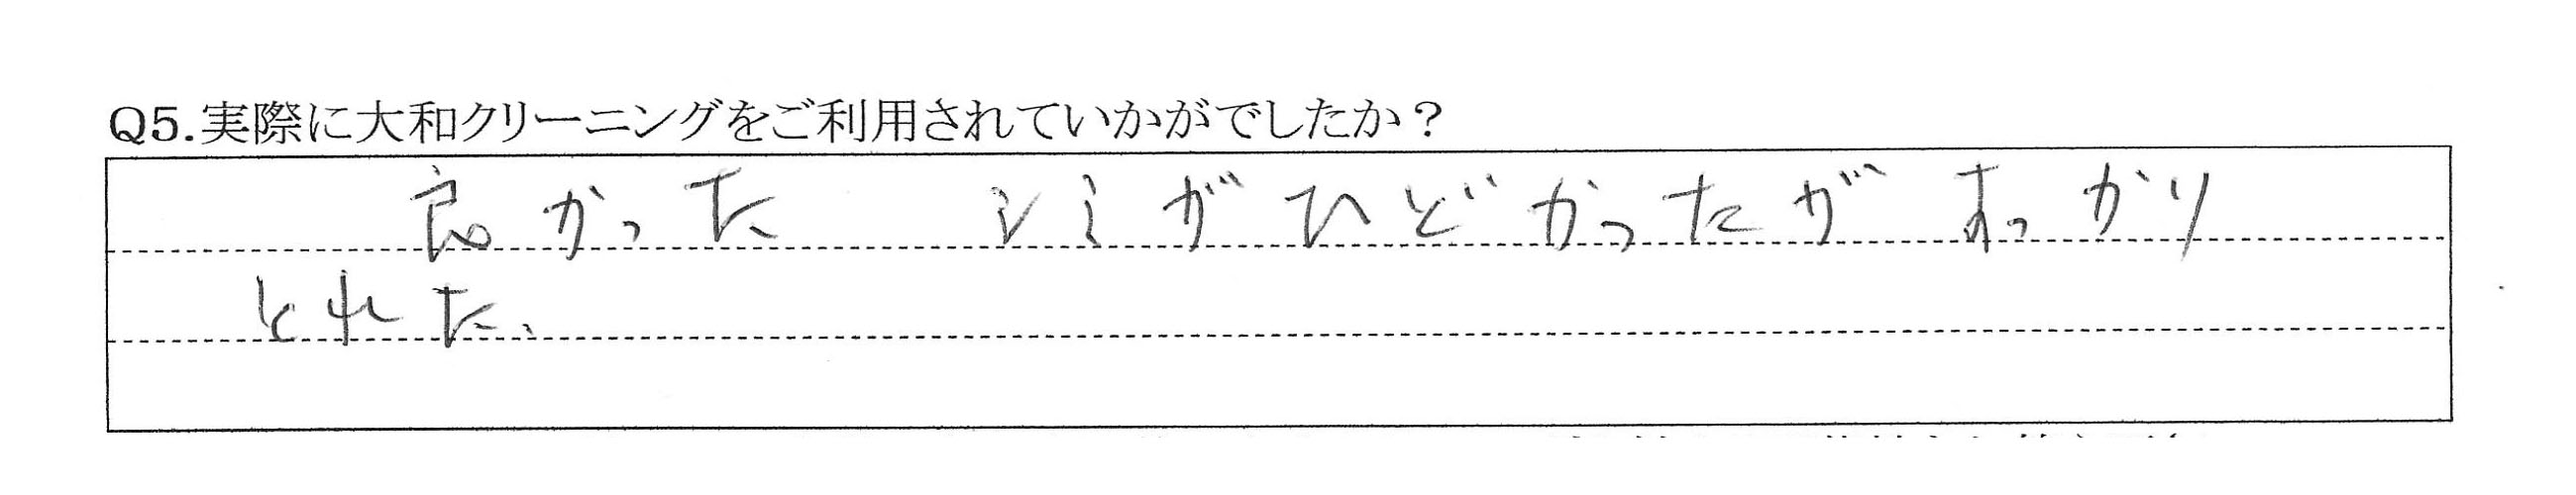 Q5.実際に大和クリーニングをご利用されていかがでしたか？
良かった　シミがひどかったが すっかり
とれた、